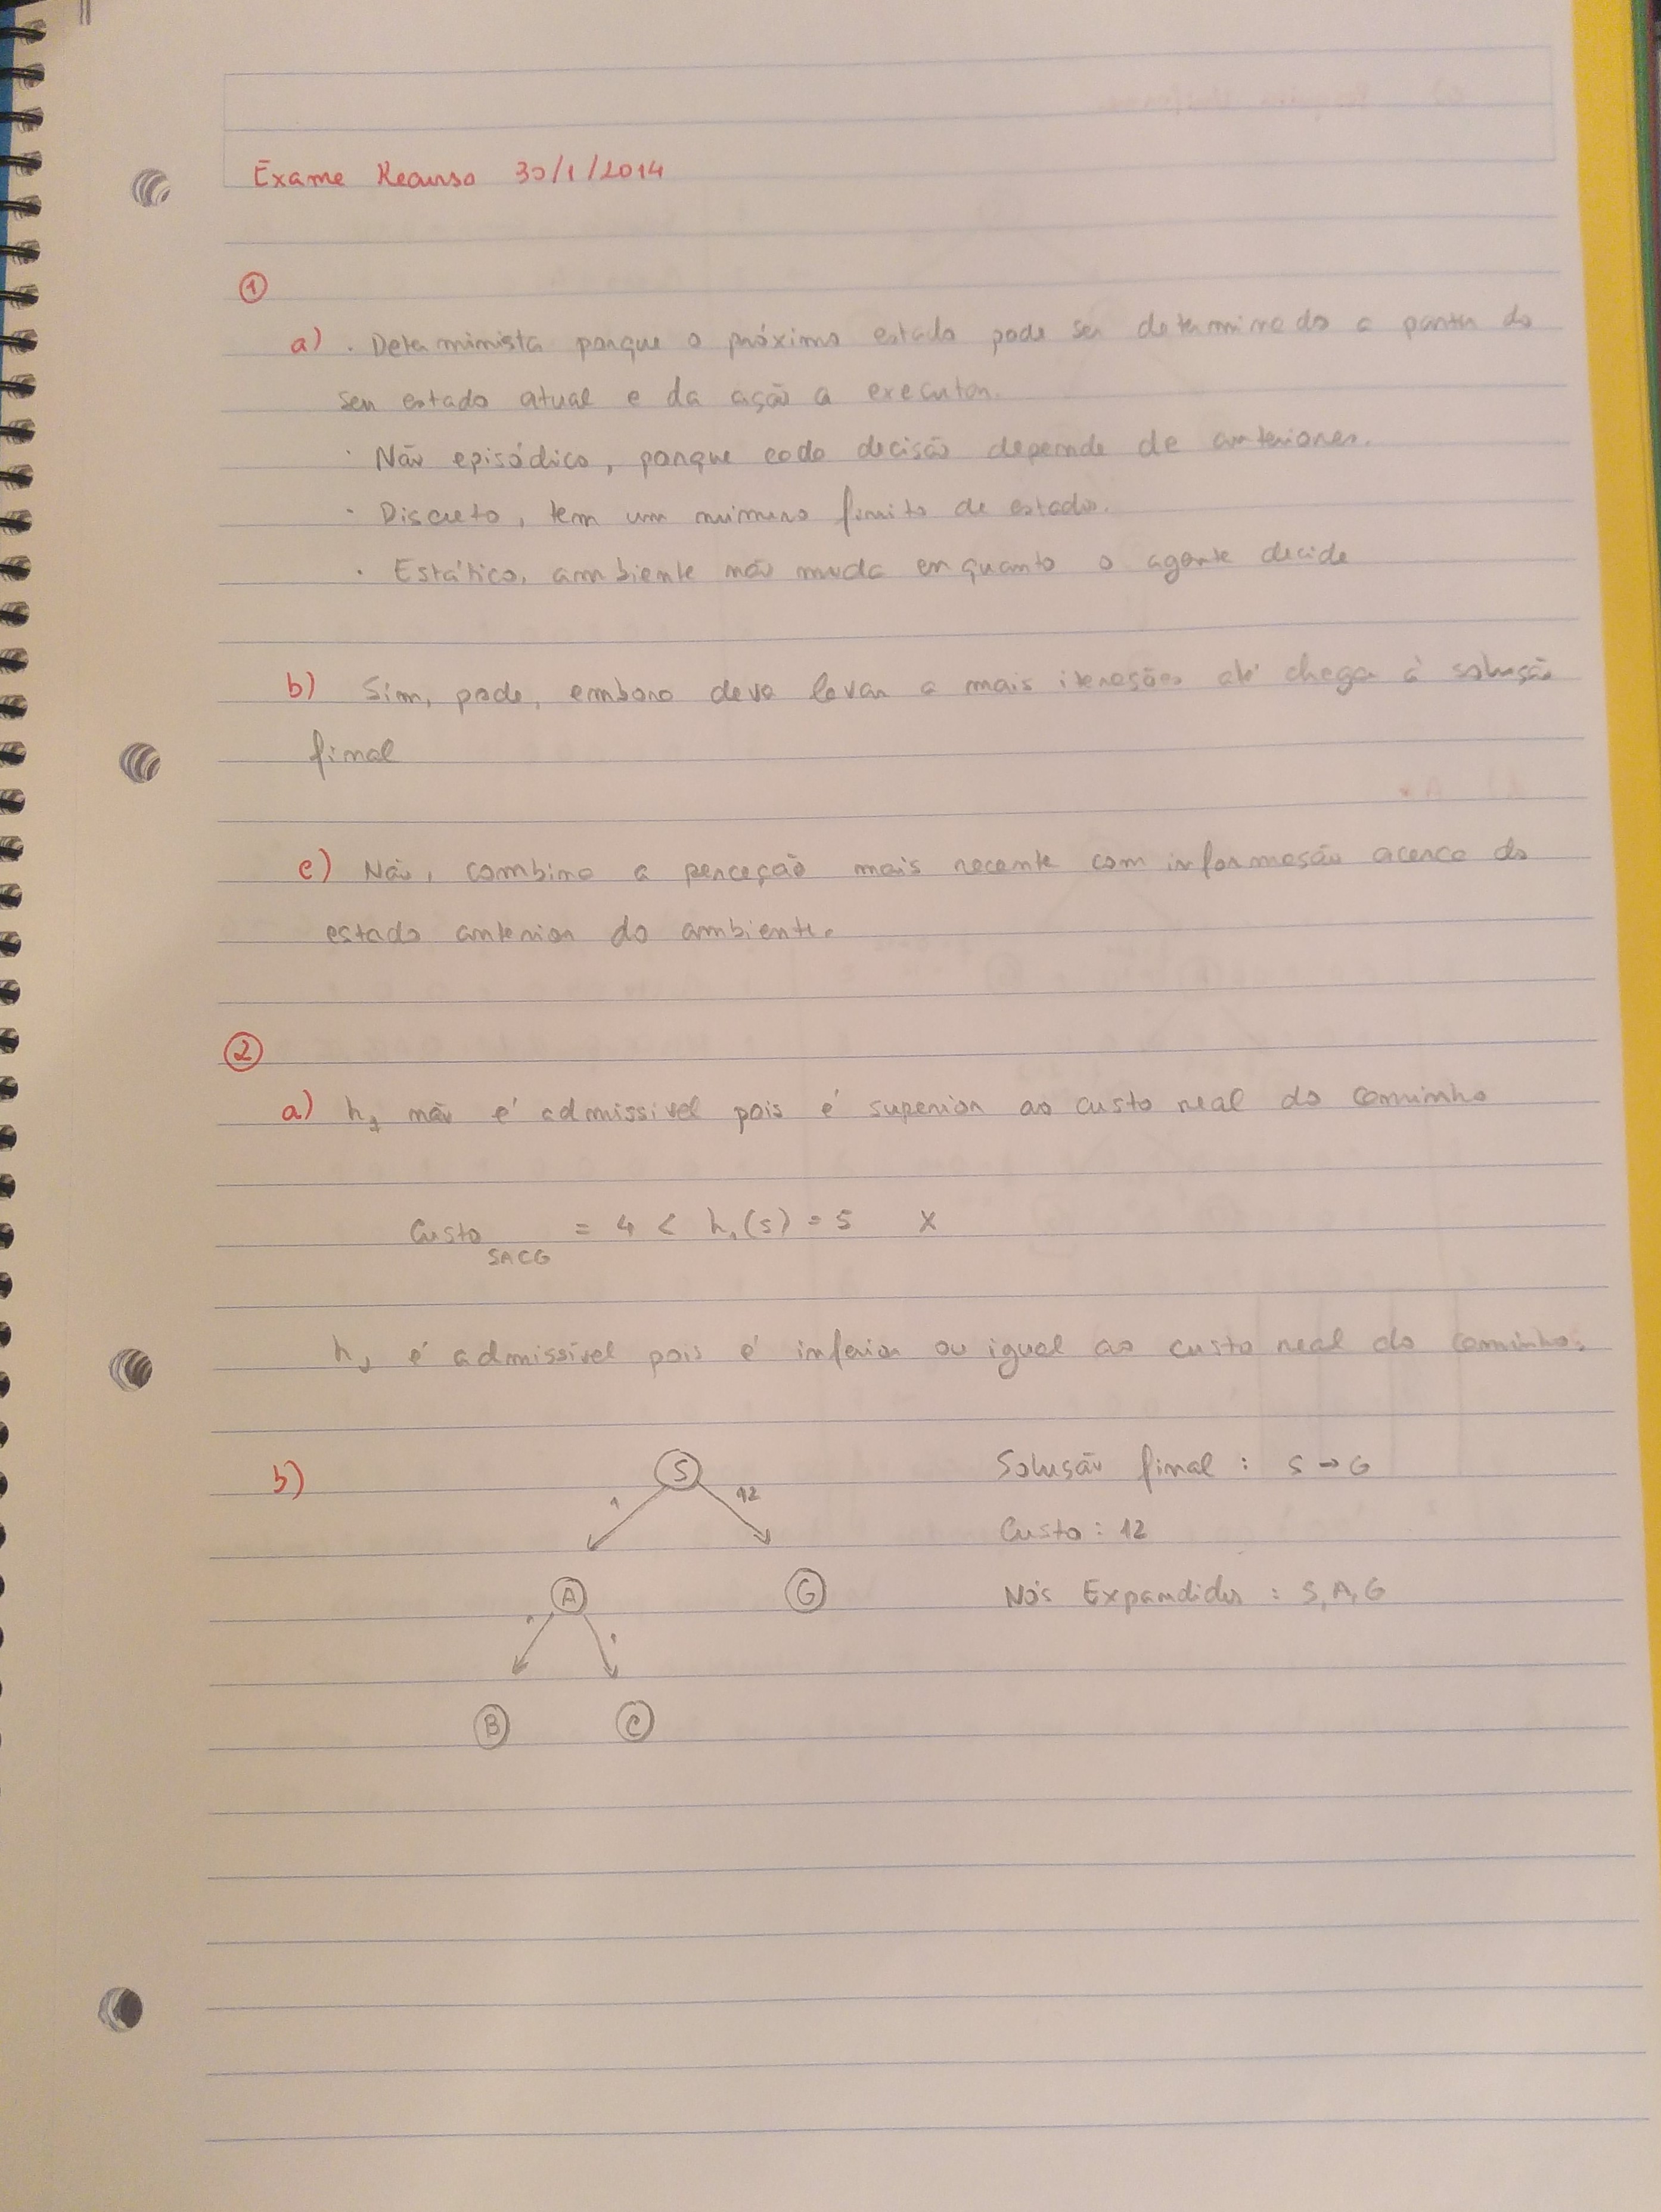 Exame Recurso 30/1/2014
1
a) . Determinista porque o próximo estado pode ser determinado a partir do
seu estado atual e da ação a executar.
. Não episódico, porque cada decisão depende de anteriores.
. Discreto, tem um número finito de estados.
. Estático, ambiente não muda enquanto o agente decide
b) Sim, pode, embora deva levar a mais iterações até chegar à solução
final
c) Não, combina a perceção mais recente com informação acerca do
estado anterior do ambiente.
2
a) h1 não é admissível pois é superior ao custo real do caminho
Custo SACG = 4 < h1(s) = 5 X
h2 é admissível pois é inferior ou igual ao custo real do caminho.
b) S Solução final : S → G
1 12
Custo : 12
A G Nós Expandidos : S, A, G
B C